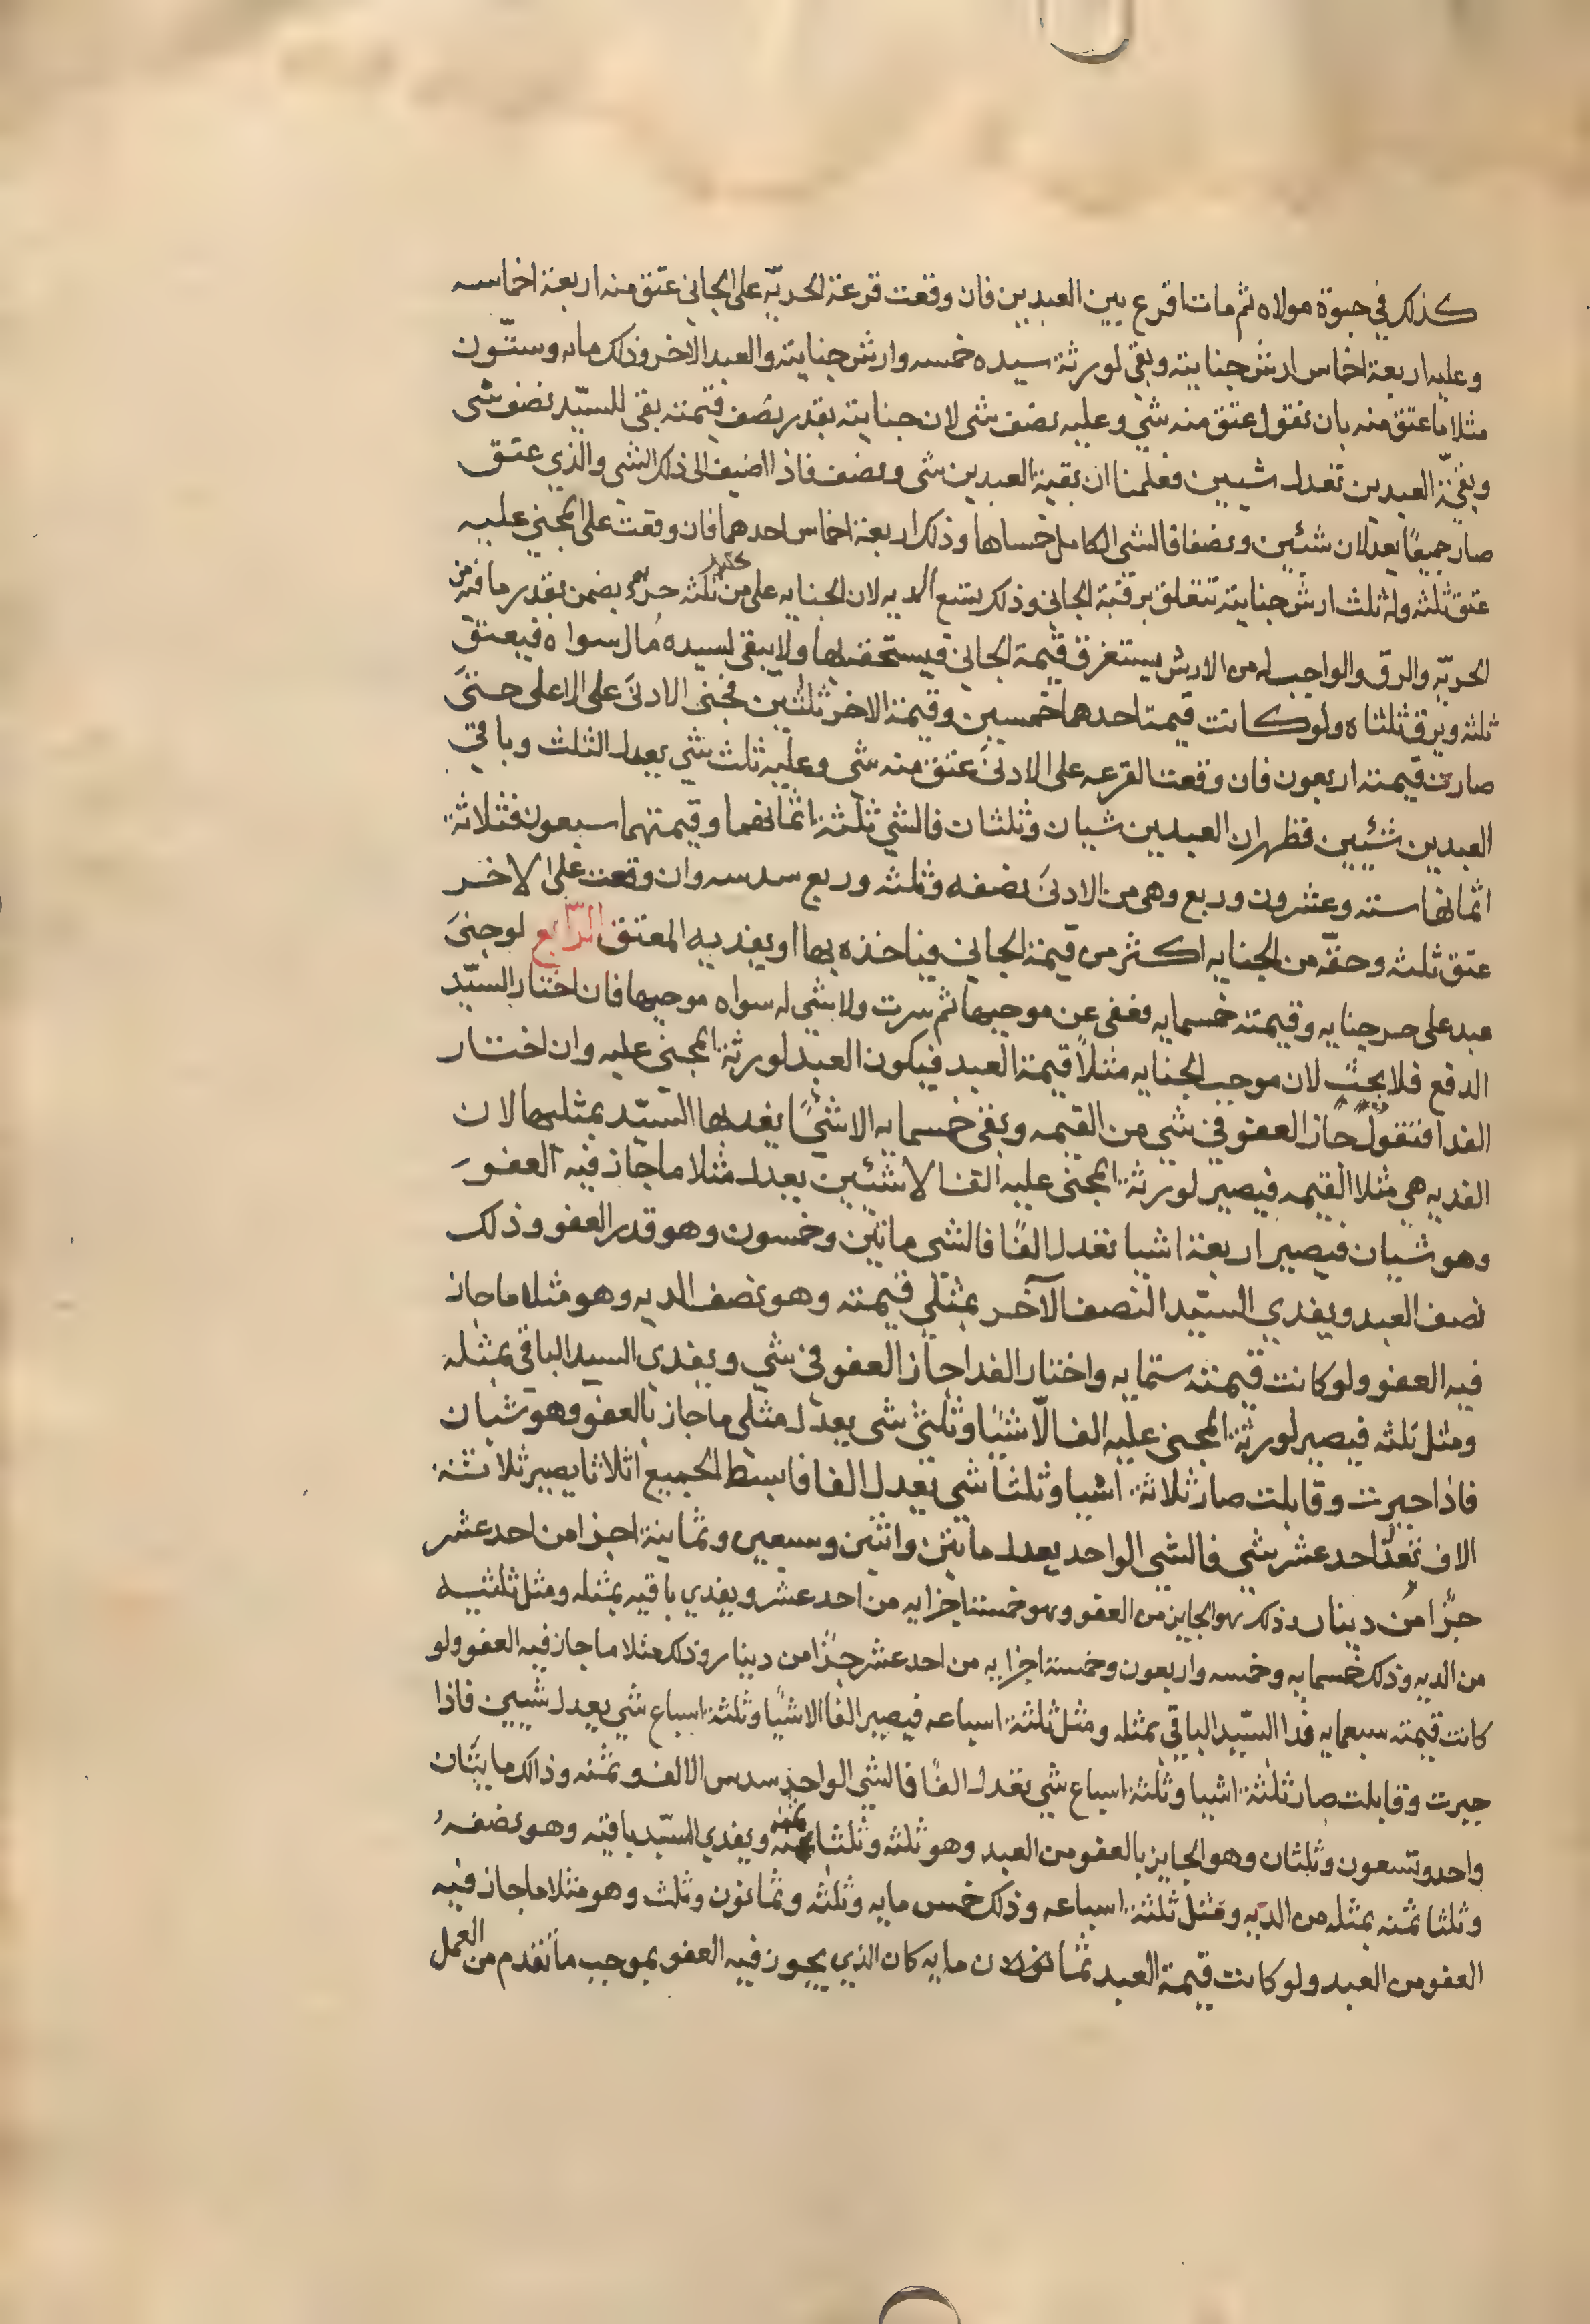 كذلك في حيوة مولاه ثم مات اقرع بين العبدين فان وقعت قرعة الحريّه على الجاني عتق منه اربعة اخماسه
وعليه اربعة اخماس ارش جنايته وبقي لورثة سيده خمسه وارش جنايته والعبد الاخر وذلك مايه وستّون
مثلا ما عتق منه بان نقول عتق منه شي وعليه نصف شى لان جنايته بقدر نصف قيمته بقى للسيّد نصف شى
وبقيّة العبدين تعدل شيين فعلمنا ان بقية العبدين شى ونصف فاذا اضيف الى ذلك الشى والذي عتق
صار جميعًا يعدلان شئين ونصفا فالشى الكامل خمساها وذلك اربعة اخماس احدهما فان وقعت على المجني عليه
عتق ثلثه وله ثلث ارش جنايته تتعلق برقبة الجاني وذلك تسع الديه لان الجنايه على من ثلثه حر يضمن بقدر ما فيه من
الحريّه والرق والواجب له من الارش يستغرق قيمة الجاني فيستحقه بها ولا يبقى لسيده مال سواه فيعتق
ثلثه ويرق ثلثاه ولو كانت قيمة احدهما خمسين وقيمة الاخر ثلثين فجنى الادنى على الاعلى حتى
صارت قيمته اربعون فان وقعت القرعه على الادنى عتق منه شى وعليه ثلث شي يعدل الثلث وباقي
العبدين شئيين فظهر ان العبدين شيان وثلثان فالشي ثلثة اثمانهما وقيمتهما سبعون فثلاثة
اثمانها ستة وعشرون وربع وهى من الادنى نصفه وثلثه وربع سدسه وان وقعت على الاخر
عتق ثلثه وحقّه من الجنايه اكثر من قيمة الجاني فياخذه بها او يفديه المعتق الرّابع لو جنى
عبد على حر جنايه وقيمته خمسمايه فعفى عن موجبها ثم سرت ولا شي له سواه موجبها فان اختار السيّد
الدفع فلا بحث لان موجب الجنايه مثلا قيمة العبد فيكون العبد لورثة المجني عليه وان اختار
الفدا فنقول جاز العفو في شي من القيمه وبقى خمسمايه الا شيًا يفديها السيّد بمثليها لان
الفديه هي مثلا القيمه فيصير لورثة المجني عليه الفا لا شئيين يعدل مثلا ما جاز فيه العفو
وهو شيان فيصير اربعة اشيا تعدل الفًا فالشى مائتين وخمسون وهو قدر العفو وذلك
نصف العبد ويفدي السيّد النصف الآخر بمثلي قيمته وهو نصف الديه وهو مثلا ما جاز
فيه العفو ولو كانت قيمته ستمايه واختار الفدا جاز العفو في شي ويفدي السيد الباقي بمثله
ومثل ثلثه فيصير لورثة المجني عليه الفا الّا شيًا وثلثى شى يعدل مثلى ما جاز بالعفو وهو شيان
فاذا جبرت وقابلت صار ثلاثة اشيا وثلثا شي تعدل الفا فابسط الجميع اثلاثا يصير ثلاثة
الاف تعدل احد عشر شي فالشى الواحد يعدل مائتين واثنين وسبعين وثمانية اجزا من احد عشر
جزًا من دينار وذلك هو الجايز من العفو وهو خمسة اجزايه من احد عشر ويفدي باقيه بمثله ومثل ثلثيه
من الديه وذلك خمسمايه وخمسه واربعون وخمسة اجزايه من احد عشر جزًا من دينار وذلك مثلا ما جاز فيه العفو ولو
كانت قيمته سبعمايه فدا السيّد الباقي بمثله ومثل ثلثة اسباعه فيصير الفًا الا شيًا وثلثة اسباع شي يعدل شيين فاذا
جبرت وقابلت صار ثلثة اشيا وثلثة اسباع شي تعدل الفًا فالشي الواحد سدس الالف وثمنه وذلك مايتان
واحد وتسعون وثلثان وهو الجايز بالعفو من العبد وهو ثلثه وثلثا ثمنه ويفدي السيّد باقيه وهو نصفه
وثلثا ثمنه بمثله من الديه ومثل ثلثة اسباعه وذلك خمس مايه وثلثه وثمانون وثلث وهو مثلا ما جاز فيه
العفو من العبد ولو كانت قيمة العبد مايه كان الذي يجوز فيه العفو بموجب ما تقدم من العمل